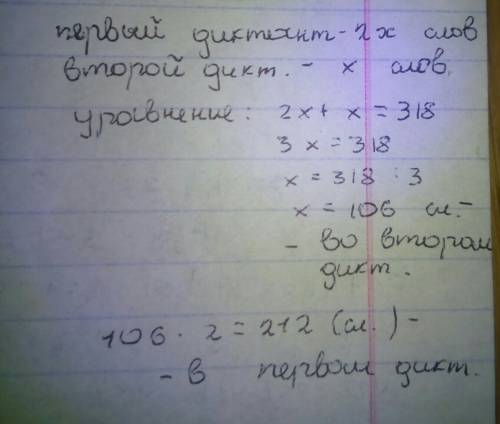 первый диктант - 2х слов
второй дикт. - х слов.
уравнение: 2х + х = 318
3х = 318
х = 318 : 3
х = 106 сл. -
- во втором
дикт.
106 · 2 = 212 (сл.) -
- в первом дикт.